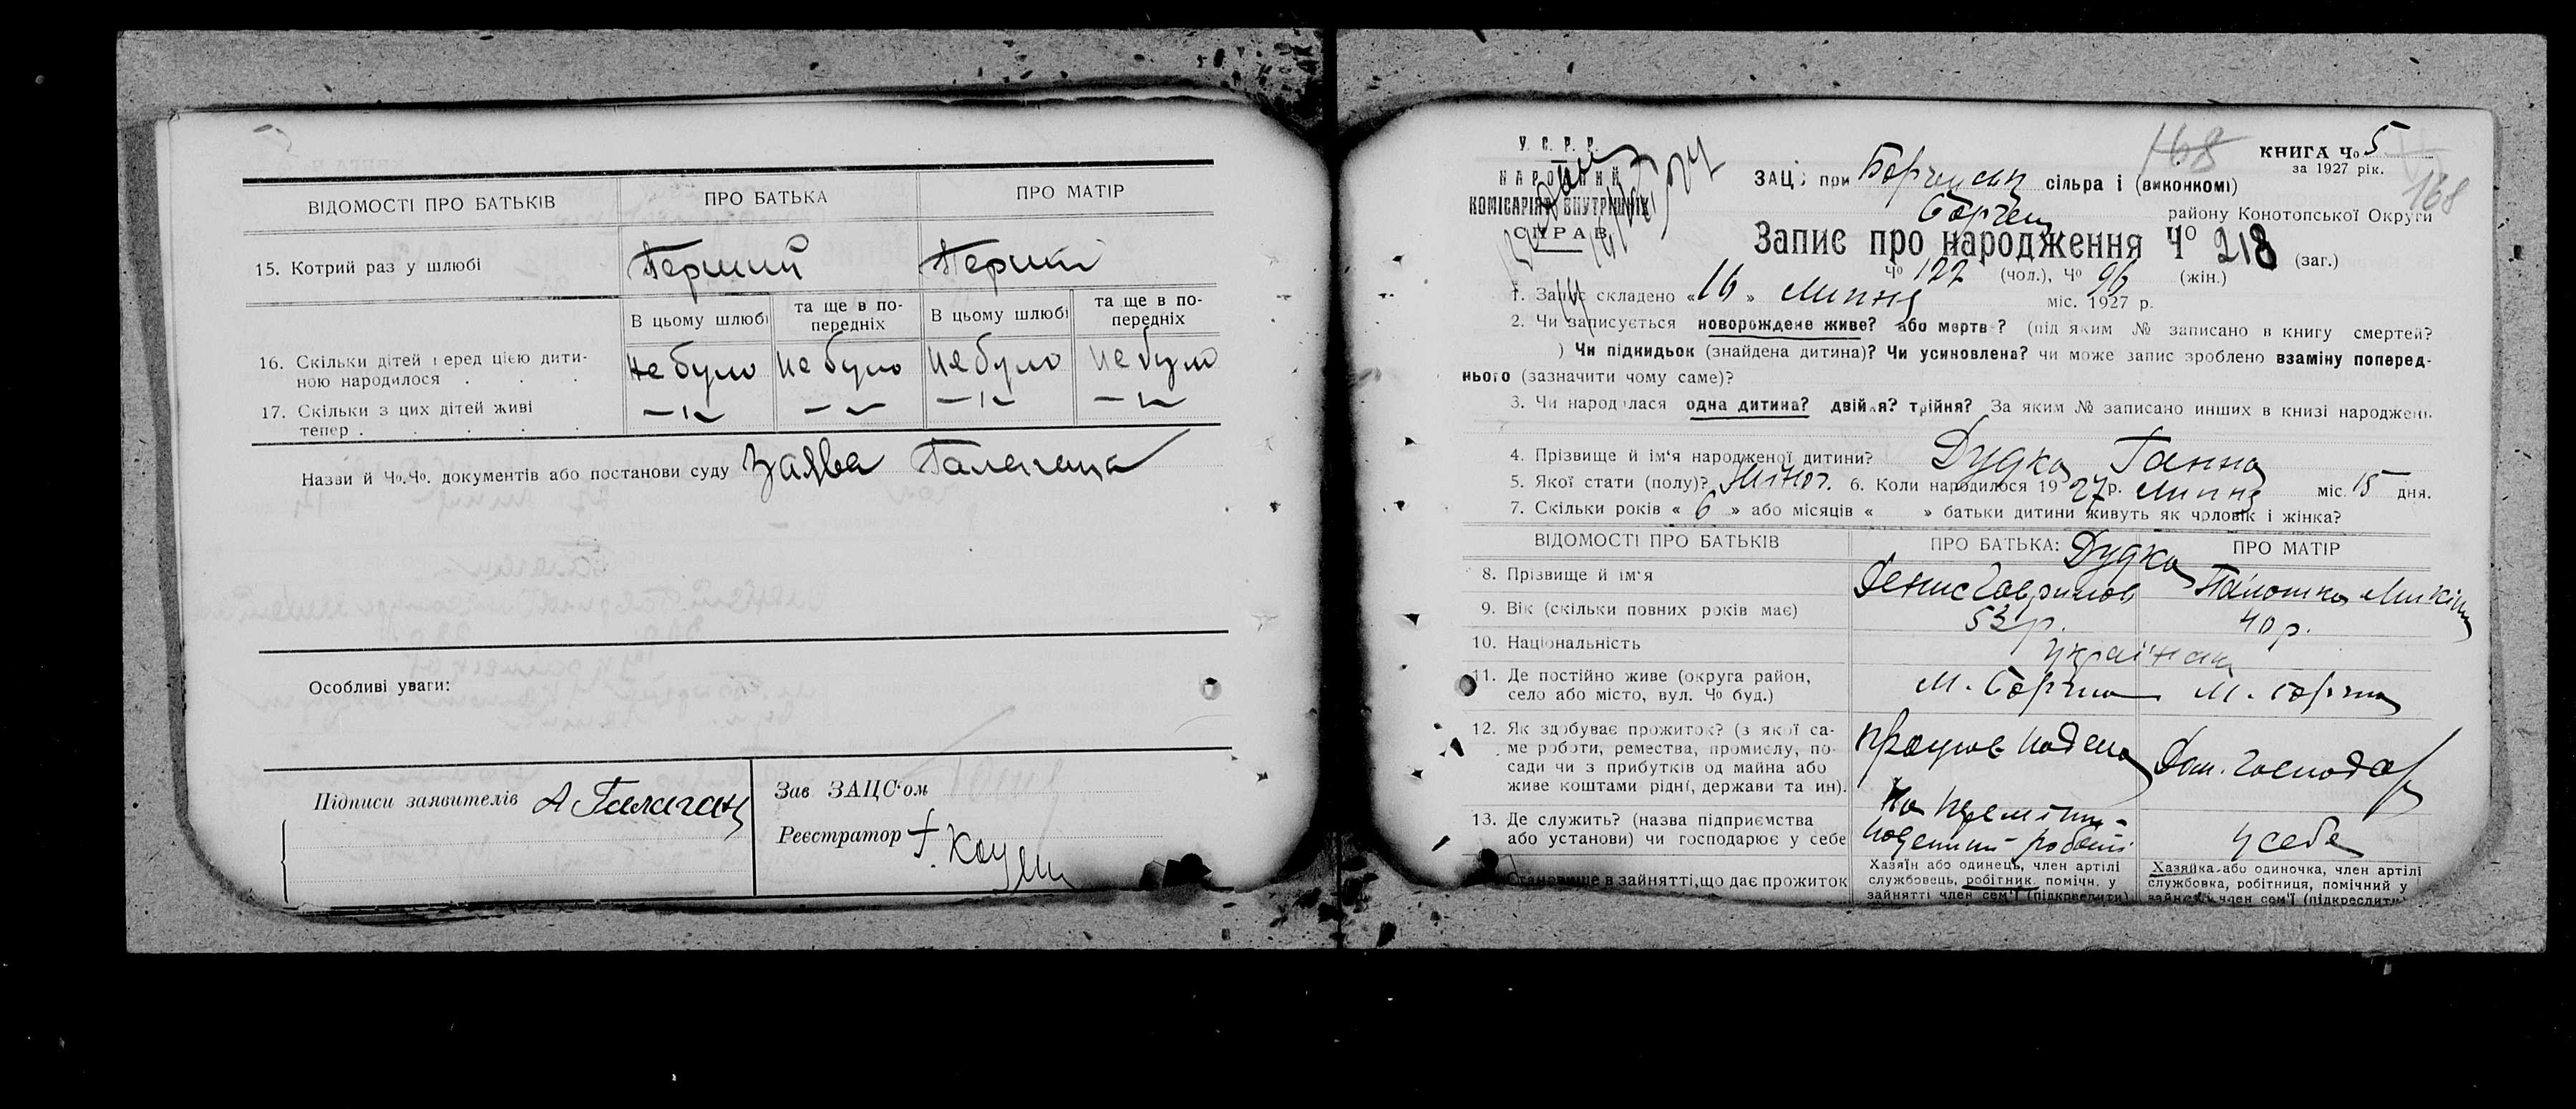 ВІДОМОСТІ ПРО БАТЬКІВ
ПРО БАТЬКА
ПРО МАТІР
15. Котрий раз у шлюбі
Перший
Перший
В цьому шлюбі
та ще в по-
передніх
В цьому шлюбі
та ще в по-
передніх
16. Скільки дітей перед цією дити-
ною народилося . . .
Не було
Не було
Не було
Не було
17. Скільки з цих дітей живі
тепер . . . . .
Назви й Чо.Чо. документів або постанови суду Заява Галагана
Особливі уваги:
Підписи заявителів А Галаган
Зав ЗАЦС'ом
Реєстратор
У. С. Р. Р.
НАРОДНИЙ
КОМІСАРІЯТ ВНУТРІШНІХ
СПРАВ
168
КНИГА Чо 5
за 1927 рік.
168
ЗАЦС при сільраді (виконкомі)
району Конотопської Округи
Запис про народження Чо 218 (заг.)
Чо 122 (чол.), Чо 96 (жін.)
1. Запис складено «16» Липня міс. 1927 р.
2. Чи записується новорождене живе? або мертве? (під яким № записано в книгу смертей?
) Чи підкидьок (знайдена дитина)? Чи усиновлена? чи може запис зроблено взаміну поперед-
нього (зазначити чому саме)?
3. Чи народилася одна дитина? двійня? трійня? За яким № записано инших в книзі народжень
4. Прізвище й ім'я народженої дитини? Дудка Ганна
5. Якої стати (полу)? Жіноч. 6. Коли народилося 1927 р. Липня міс. 15 дня.
7. Скільки років «6» або місяців « » батьки дитини живуть як чоловік і жінка?
ВІДОМОСТІ ПРО БАТЬКІВ
ПРО БАТЬКА:
ПРО МАТІР
Дудка
8. Прізвище й ім'я
Денис Гаврилов
9. Вік (скільки повних років має)
53 р.
40 р.
10. Національність
11. Де постійно живе (округа район,
село або місто, вул. Чо буд.)
М. Борзна
М. Борзна
12. Як здобуває прожиток? (з якої са-
ме роботи, ремества, промислу, по-
сади чи з прибутків од майна або
живе коштами рідні, держави та ин).
Дом. господар
13. Де служить? (назва підприємства
або установи) чи господарює у себе
у себе
Становище в зайнятті, що дає прожиток
Хазяїн або одинець, член артілі
службовець, робітник, помічн. у
зайнятті член сем'ї (підкреслити)
Хазяйка або одиночка, член артілі
службовка, робітниця, помічний у
зайнятті член сем'ї (підкреслити)